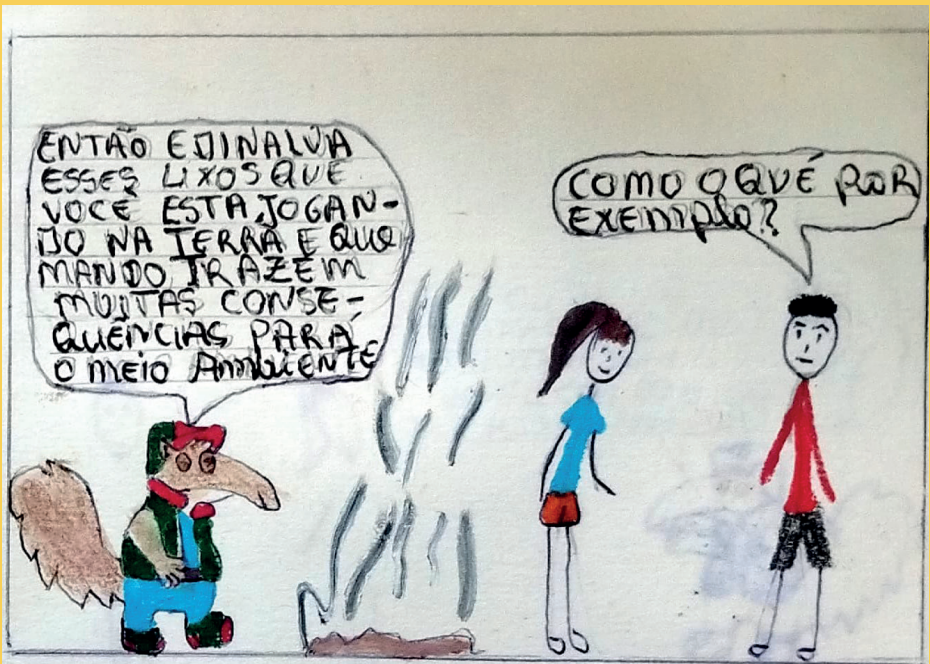 ENTÃO EDINALVA
ESSES LIXOS QUE
VOCÊ ESTA JOGAN-
DO NA TERRA E QUE
MANDO TRAZEM
MUITAS CONSE-
QUÊNCIAS PARA
O MEIO AMBIENTE
COMO O QUÉ POR
EXEMPLO?